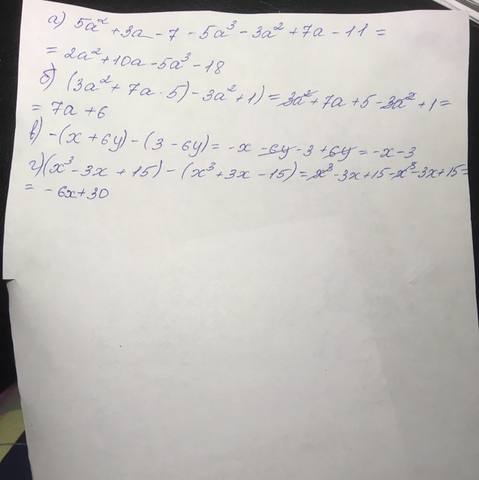 а) 5a² + 3a - 7 - 5a³ - 3a² + 7a - 11 =
= 2a² + 10a - 5a³ - 18
б) (3a² + 7a · 5) - 3a² + 1) = 3a² + 7a + 5 - 3a² + 1 =
= 7a + 6
в) -(x + 6y) - (3 - 6y) = -x - 6y - 3 + 6y = -x - 3
г) (x³ - 3x + 15) - (x³ + 3x - 15) = x³ - 3x + 15 - x³ - 3x + 15 =
= -6x + 30